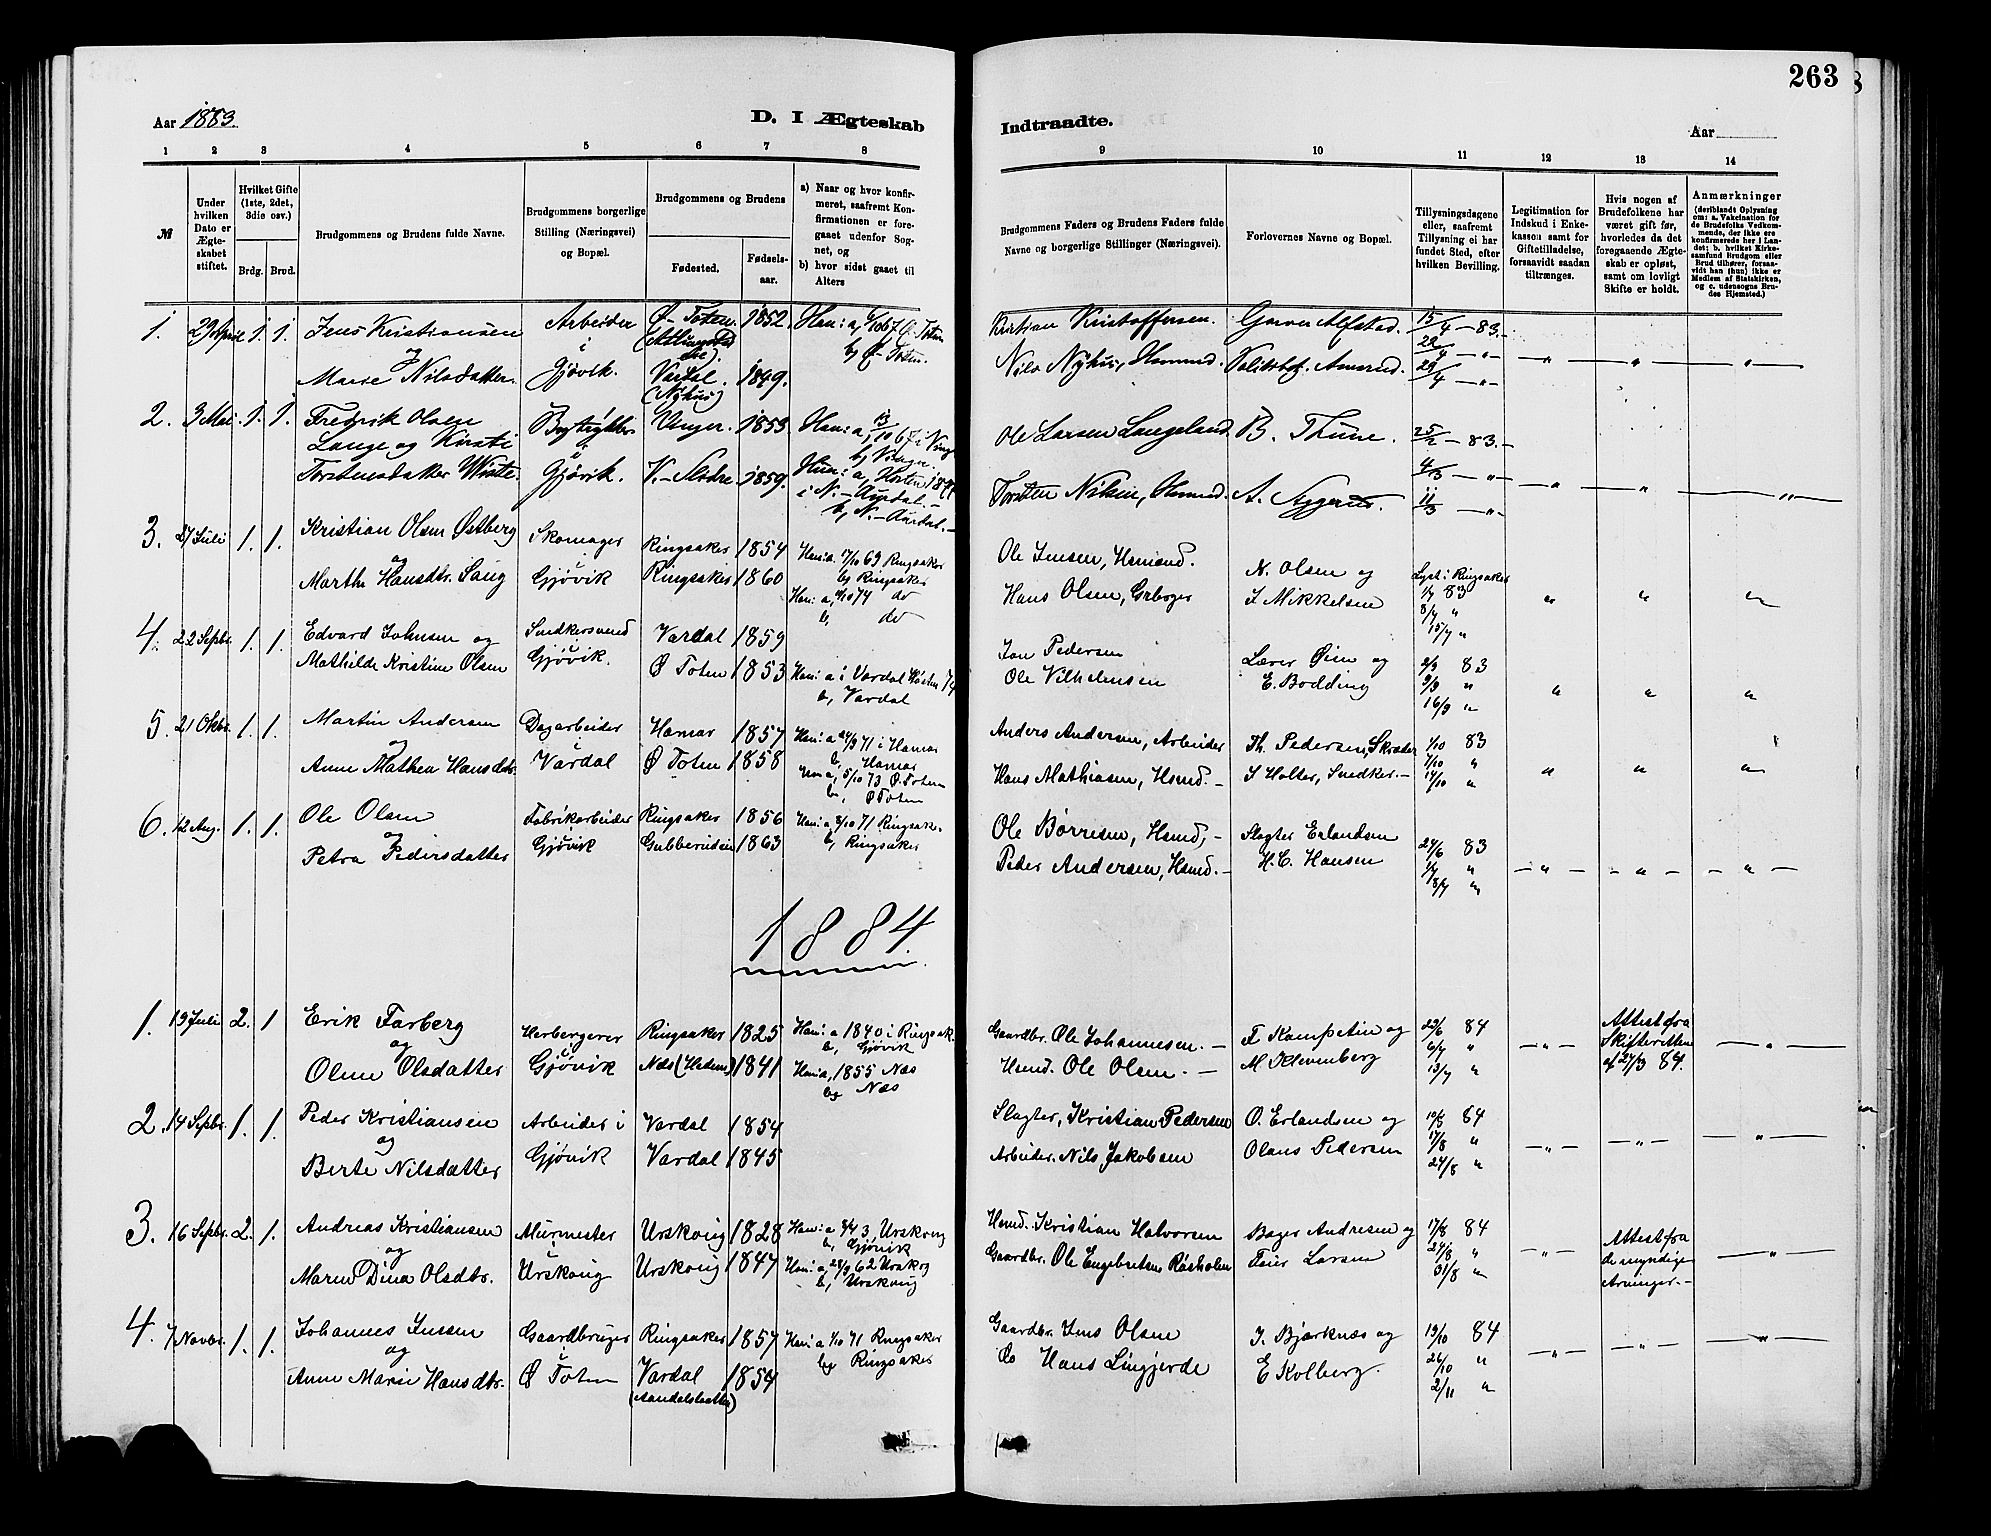 263
Aar 1883.
D. I Ægteskab
Indtraadte.
Aar
1 2 3 4 5 6 7 8
9 10 11 12 13 14
№
Under hvilken Dato er Ægteskabet stiftet.
Hvilket Gifte (1ste, 2det, 3die osv.)
Brdg. Brud.
Brudgommens og Brudens fulde Navne.
Brudgommens borgerlige Stilling (Næringsvei) og Bopæl.
Brudgommens og Brudens
Fødested.
Fødselsaar.
a) Naar og hvor konfirmeret, saafremt Konfirmationen er foregaaet udenfor Sognet, og
b) hvor sidst gaaet til Alters
Brudgommens Faders og Brudens Faders fulde Navne og borgerlige Stillinger (Næringsvei).
Forlovernes Navne og Bopæl.
Tillysningsdagene eller, saafremt Tillysning ei har fundet Sted, efter hvilken Bevilling.
Legitimation for Indskud i Enkekassen samt for Giftetilladelse, forsaavidt saadan tiltrænges.
Hvis nogen af Brudefolkene har været gift før, hvorledes da det foregaaende Ægteskab er opløst, samt om lovligt Skifte er holdt.
Anmærkninger (deriblandt Oplysning om: a. Vakcination for de Brudefolks Vedkommende, der ikke ere konfirmerede her i Landet; b. hvilket Kirkesamfund Brudgom eller Brud tilhører, forsaavidt han (hun) ikke er Medlem af Statskirken, og c. udensogns Brudes Hjemsted.)
1. 29 April 1. 1. Jens Kristiansen Arbeider Ø-Toten 1852. Han: a, 6/10 67 Ø. Toten Kristian Kristoffersen. Garver Alfstad. 15/4 - 83.
og i b, Ø-Toten. 22/4 - "
Marie Nilsdatter. Gjøvik. Vardal. 1849. Nils Nyhus, Hsmnd. Politibtj. Amsrud. 29/4 - "
(Nyhus)
2. 3 Mai. 1. 1. Fredrik Olsen Vinger. 1853. Han: a, 13/10 67 i Ving.
Lange og Kirsti i b, Vinger. Ole Larsen Langeland B. Thune. 25/2 - 83.
Torstensdatter Wiste Gjøvik. V.-Slidre. 1859. Hun: a, Høsten 18 4/3 - "
i N.-Aurdal. Torsten Nilsen, Hsmnd. A. 11/3 - "
b, N.-Aurdal.
3. 27 Juli 1. 1. Kristian Olsen Østberg Skomager Ringsaker 1854 Han: a. 7/10 69 Ringsaker Ole Jensen, Hsmand. N. Olsen og Lyst i Ringsaker
og i b, Ringsaker 1/7 83
Marthe Hansdtr. Saug Gjøvik Ringsaker 1860 Hun: a, 4/10 74 do Hans Olsen, Grbrger J. Mikkelsen 8/7 "
b, do 15/7 "
4. 22 Septbr. 1. 1. Edvard Johnsen og Snedkersvend Vardal 1859 Jon Pedersen Lærer Øien og 2/9 83
Mathilde Kristine Olsen Gjøvik. Ø Toten 1853 Hun: a i Vardal Høsten 74 Ole Vilhelmsen E. Bodding 9/9 "
b, Vardal 16/9 "
5. 21 Oktbr. 1. 1. Martin Andersen Dagarbeider Hamar 1857 Han: a 24/9 71 i Hamar Anders Andersen, Arbeider Th. Pedersen, Skræder 1/10 83
og i b, Hamar 7/10 "
Anne Mathea Hansdtr. Vardal Ø Toten 1858 Hun a, 5/10 73 Ø. Toten Hans Mathiasen, Hsmd. J Holter, Snedker. 14/10 "
b, Ø Toten
6. 12 Aug. 1. 1. Ole Olsen Fabrikarbeider Ringsaker 1856 Han: a, 8/10 71 Ringsak. Ole Børresen, Hsmd, Slagter Erlandsen 24/6 83
og i b, Ringsaker 1/7 "
Petra Pedersdatter Gjøvik Gubberuden 1863 Peder Andersen, Hsmd. H. C. Hansen 8/7 "
1884.
1. 19 Juli 2. 1 Erik Farberg Herbergerer Ringsaker 1825 Han: a 1840 i Ringsak. Gaardbr. Ole Johannesen. F. Kampetin og 29/6 84 Attest fra
og i b, Gjøvik 6/7 " Skifteretten
Oline Olsdatter Gjøvik Næs (Hedem) 1841 Hun: a, 1855 Næs Hsmd. Ole Olsen. M. Klevenberg 13/7 " af 27/3 84.
b, Næs
2. 14 Septbr. 1. 1. Peder Kristiansen Arbeider i Vardal 1854 Slagter, Kristian Pedersen O. Erlandsen og 10/8 84
og 17/8 "
Berte Nilsdatter Gjøvik Vardal 1845 Arbeider. Nils Jakobsen Olaus Pedersen 24/8 "
3. 16 Septbr. 2. 1. Andreas Kristiansen Murmester Urskoug 1828 Han: a 3/4 3, Urskoug Hsmd. Kristian Halvorsen Bager Andresen og 17/8 84 Attest fra
og i b, Gjøvik 24/8 " de myndige
Maren Dina Olsdtr. Urskoug Urskoug 1847 Hun: a, 28/9 62 Urskog Gaardbr. Ole Engebretsen Røsholm Feier Larsen 31/8 " Arvinger.
b, Urskoug
4. 7 Novbr. 1. 1. Johannes Jensen Gaardbruger Ringsaker 1857 Han: a 1/10 71 Ringsaker Gaardbr. Jens Olsen J. Bjørknæs og 19/10 84
og i b, Ringsaker 26/10 "
Anne Marie Hansdtr. Ø Toten Vardal 1854 Do Hans Lingjerde E Kolberg. 2/11 "